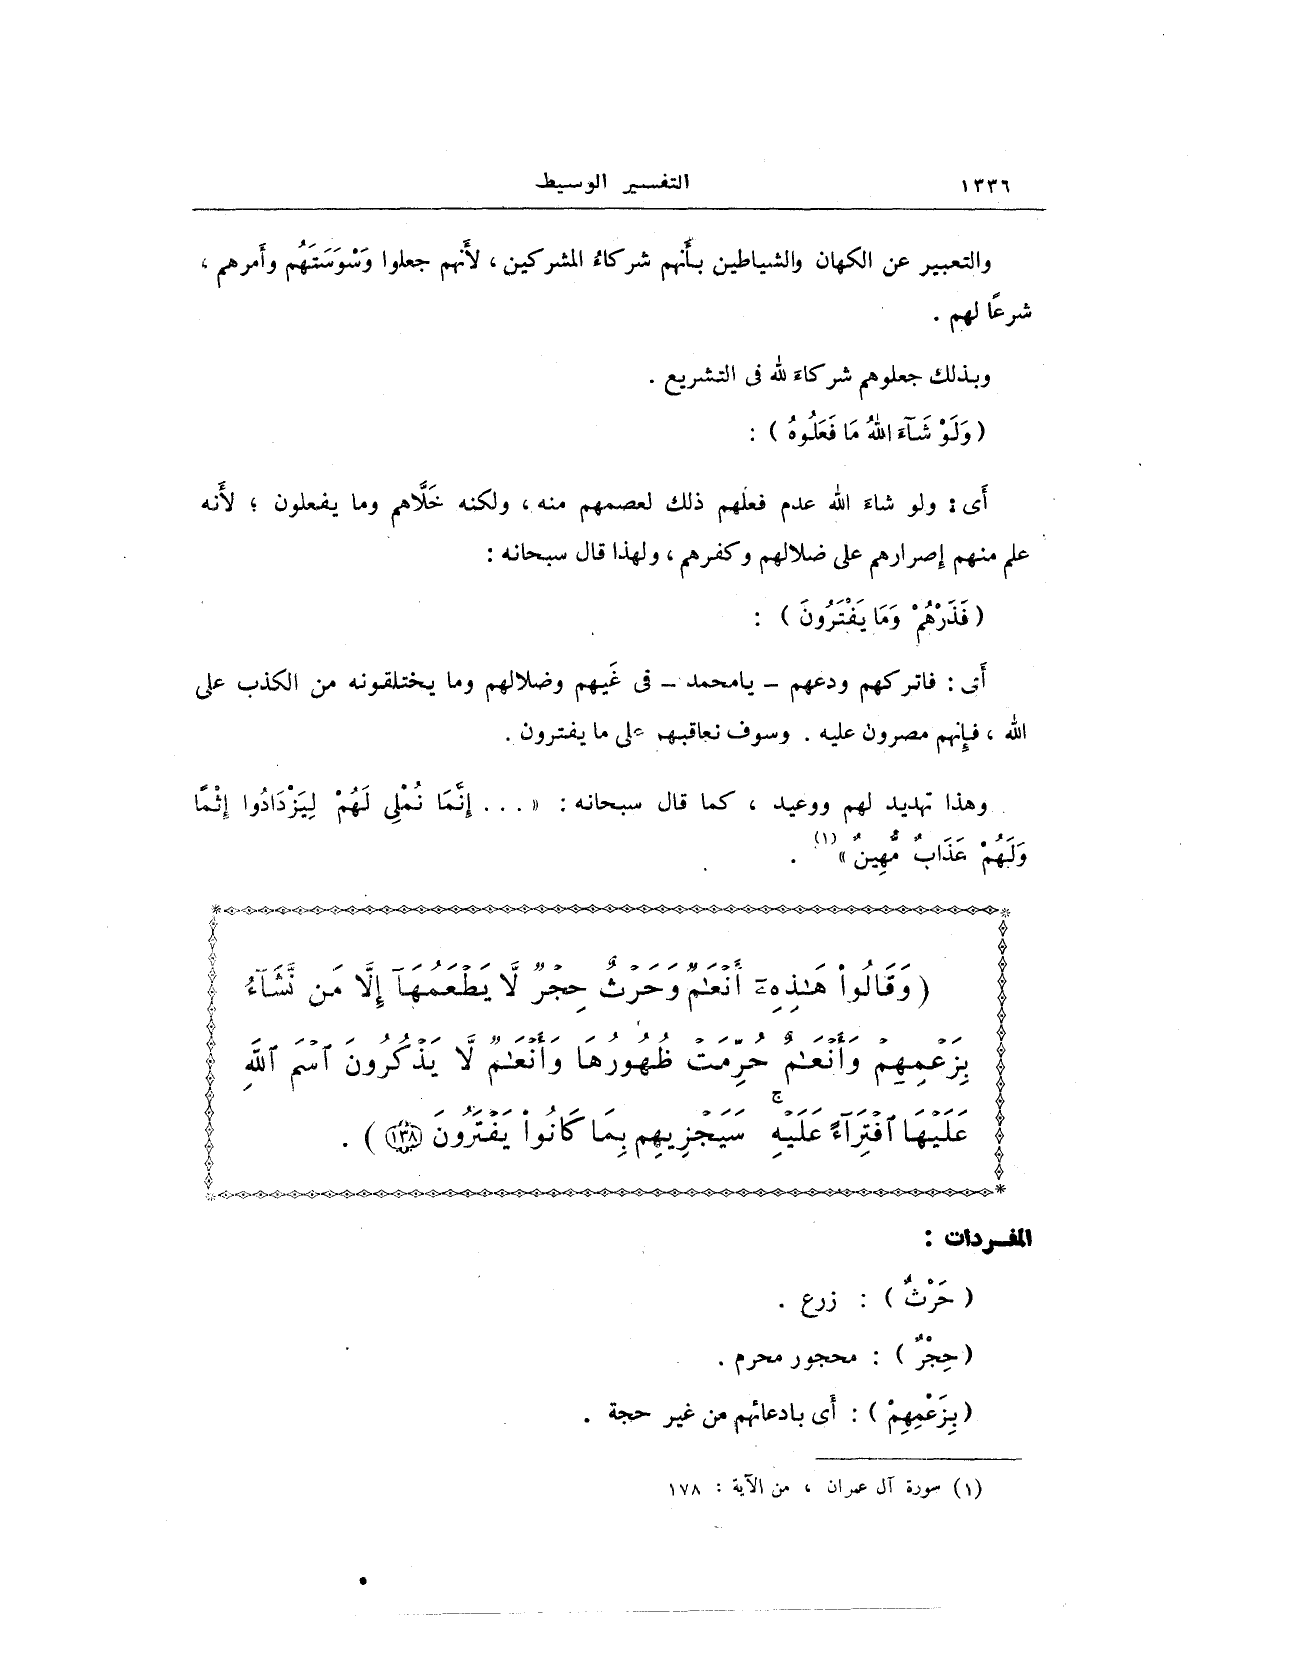 ١٣٣٦ التفسير الوسيط
والتعبير عن الكهان والشياطين بأَنهم شركاءُ المشركين ، لأَنهم جعلوا وَسْوَسَتَهُم وأَمرهم ،
شرعًا لهم .
وبذلك جعلوهم شركاءَ لله فى التشريع .
( وَلَوْ شَآءَ اللهُ مَا فَعَلُوهُ ) :
أَى : ولو شاءَ الله عدم فعلهم ذلك لعصمهم منه ، ولكنه خَلَّاهم وما يفعلون ؛ لأَنه
علم منهم إصرارهم على ضلالهم وكفرهم ، ولهذا قال سبحانه :
( فَذَرْهُمْ وَمَا يَفْتَرُونَ ) :
أَى : فاتركهم ودعهم – يامحمد – فى غَيهم وضلالهم وما يختلقونه من الكذب على
الله ، فإنهم مصرون عليه . وسوف نعاقبهم على ما يفترون .
وهذا تهديد لهم ووعيد ، كما قال سبحانه : « ... إِنَّمَا نُمْلِى لَهُمْ لِيَزْدَادُوا إِثْمًا
وَلَهُمْ عَذَابٌ مُّهِينٌ » (١) .
( وَقَالُوا۟ هَـٰذِهِۦٓ أَنْعَـٰمٌ وَحَرْثٌ حِجْرٌ لَّا يَطْعَمُهَآ إِلَّا مَن نَّشَآءُ
بِزَعْمِهِمْ وَأَنْعَـٰمٌ حُرِّمَتْ ظُهُورُهَا وَأَنْعَـٰمٌ لَّا يَذْكُرُونَ ٱسْمَ ٱللَّهِ
عَلَيْهَا ٱفْتِرَآءً عَلَيْهِ ۚ سَيَجْزِيهِم بِمَا كَانُوا۟ يَفْتَرُونَ ١٣٨ ) .
المفردات :
( حَرْثٌ ) : زرع .
( حِجْرٌ ) : محجور محرم .
( بِزَعْمِهِمْ ) : أَى بادعائهم من غير حجة .
(١) سورة آل عمران ، من الآية : ١٧٨